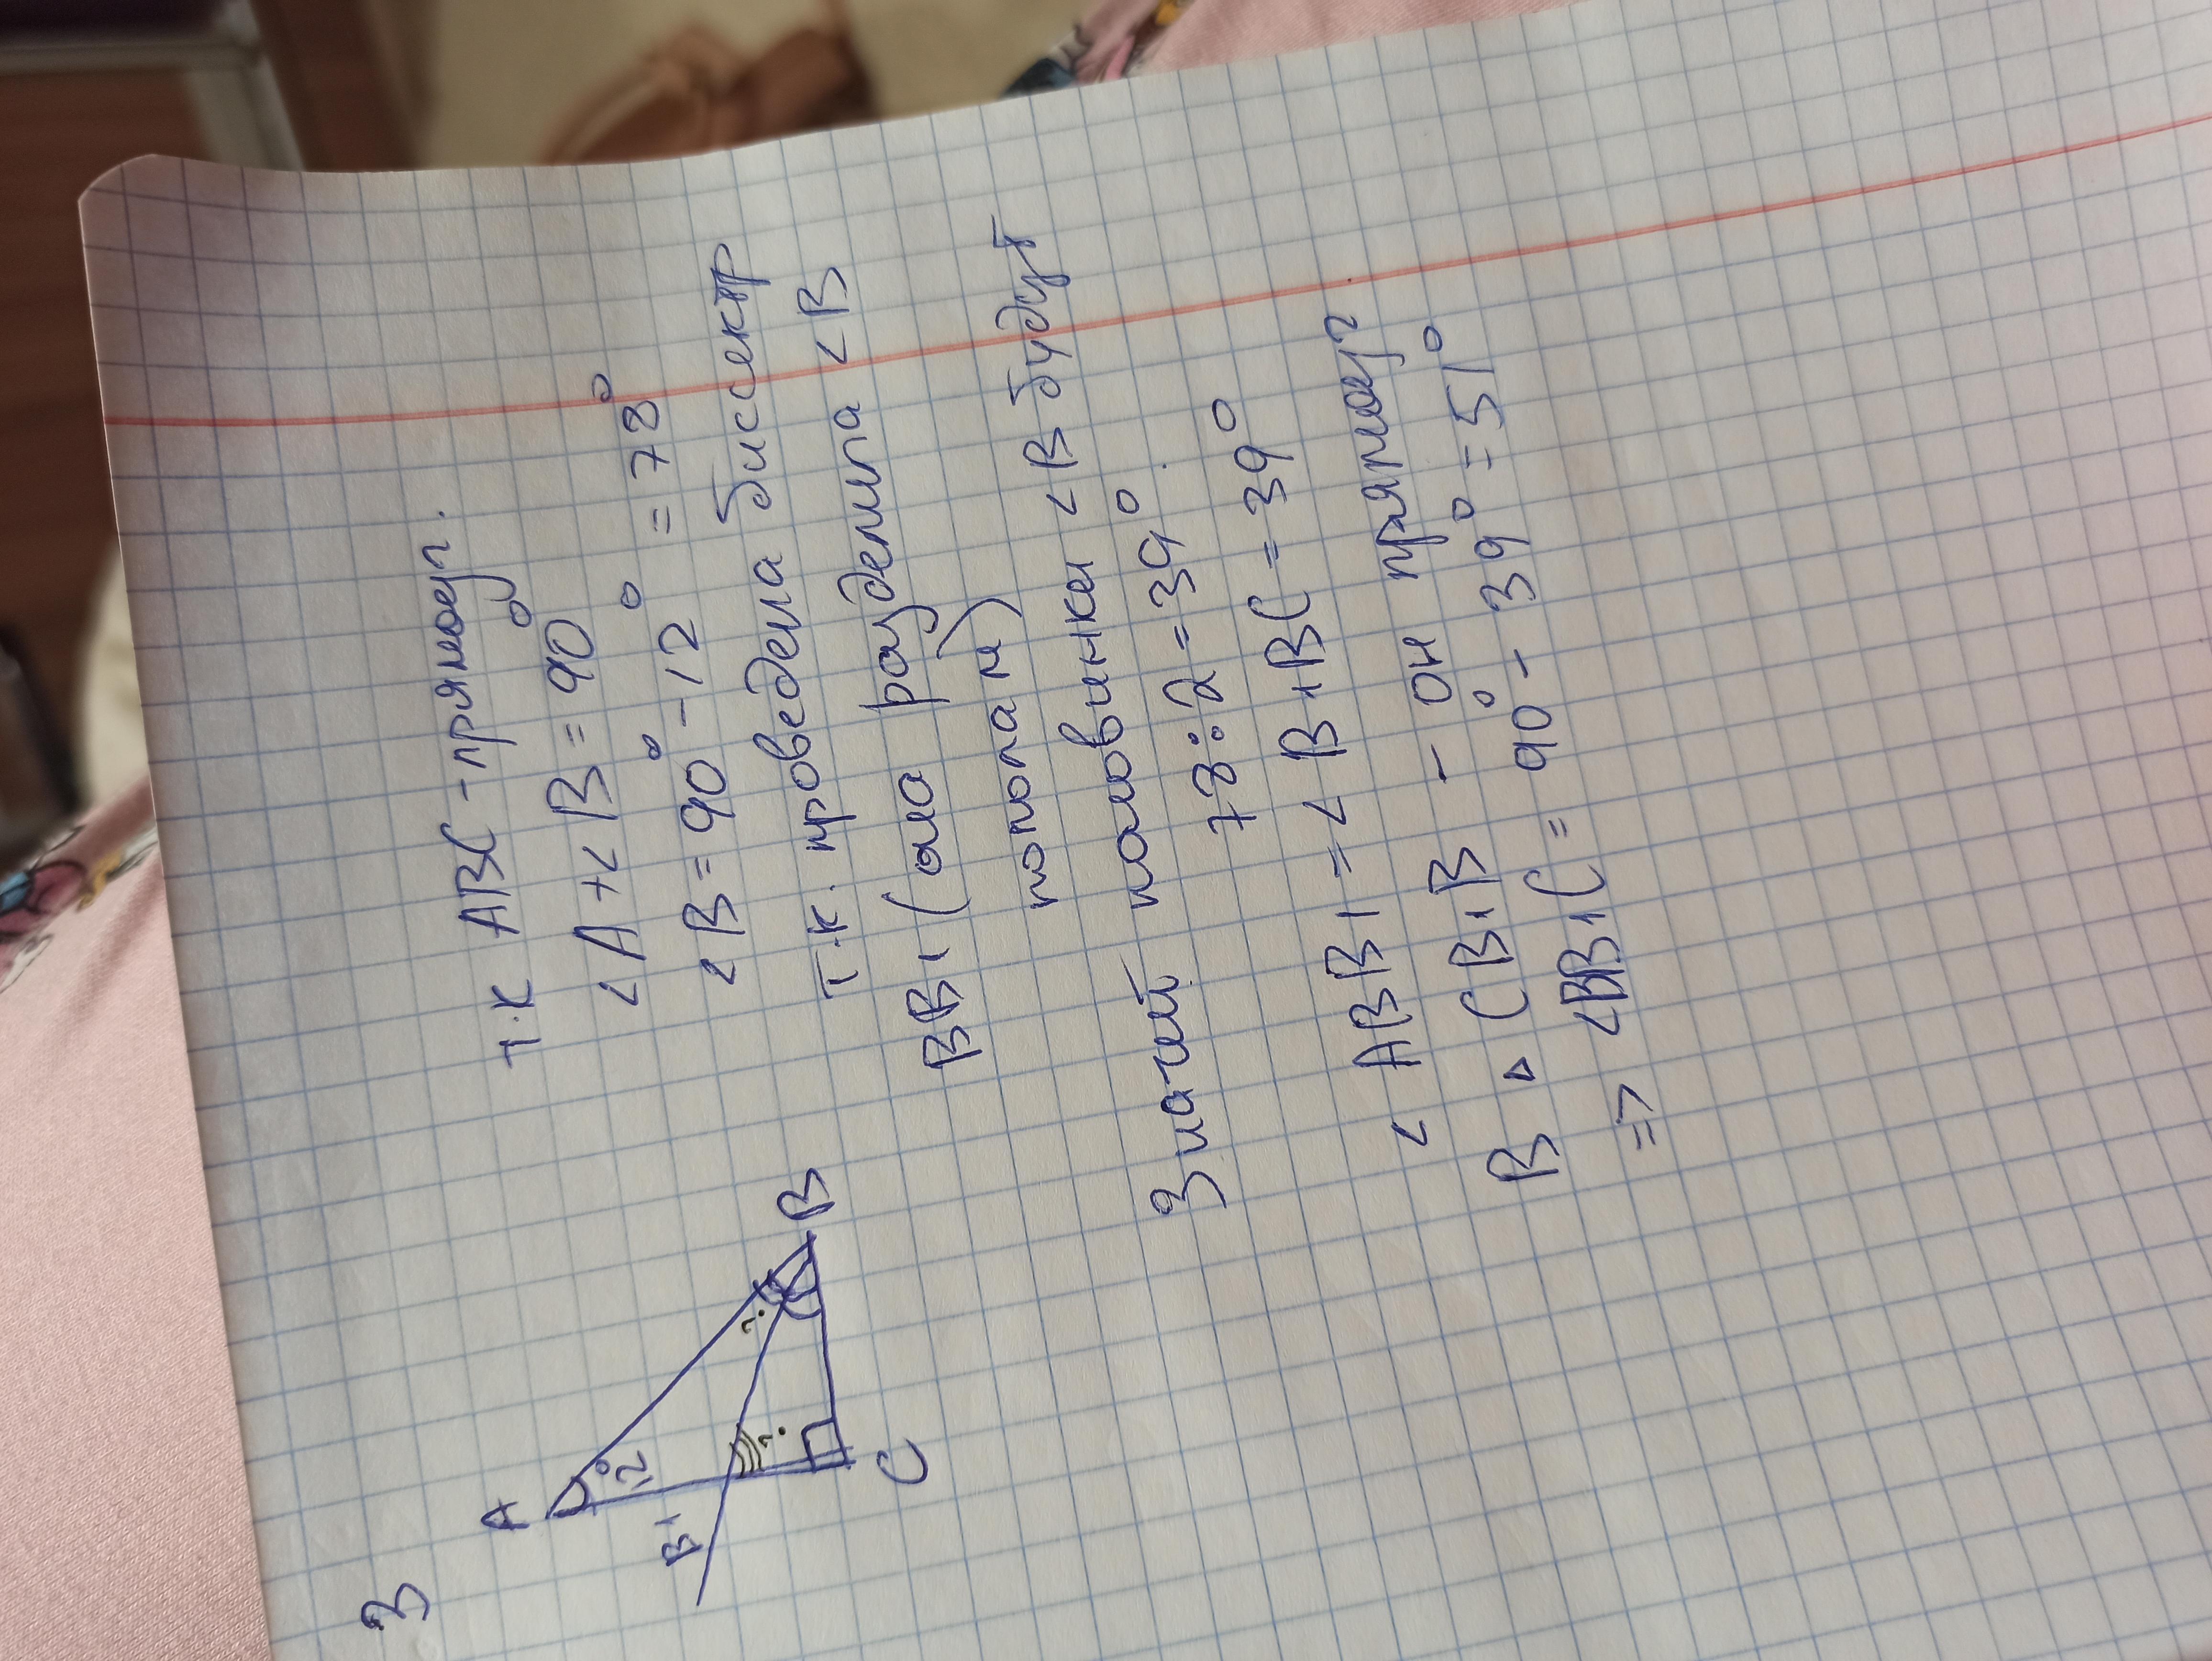 3
A
12°
?
B
B1
?
C
т.к ABC - прямоуг.
∠A + ∠B = 90°
∠B = 90° - 12° = 78°
т.к. проведена биссектр
BB1 (она разделила ∠B
пополам)
Значит половинки ∠B будут
78 ÷ 2 = 39°
∠ABB1 = ∠B1BC = 39°
В △ CB1B - он прямоуг
=> ∠BB1C = 90° - 39° = 51°